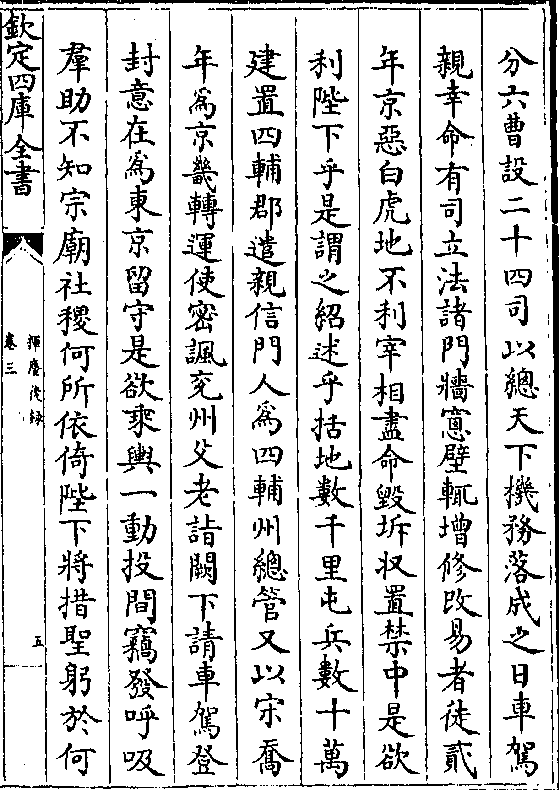 分六曹設二十四司以總天下機務落成之日車駕
親幸命有司立法諸門牆窻壁輒增修改易者徒貳
年京惡白虎地不利宰相盡命毀坼收置禁中是欲
利陛下乎是謂之紹述乎括地數千里屯兵數十萬
建置四輔郡遣親信門人爲四輔州總管又以宋喬
年爲京畿轉運使密諷兖州父老詣闕下請車駕登
封意在爲東京留守是欲乘輿一動投間竊發呼吸
羣助不知宗廟社稷何所依倚陛下將措聖躬於何
欽定四庫全書
揮麈後録
卷三
五